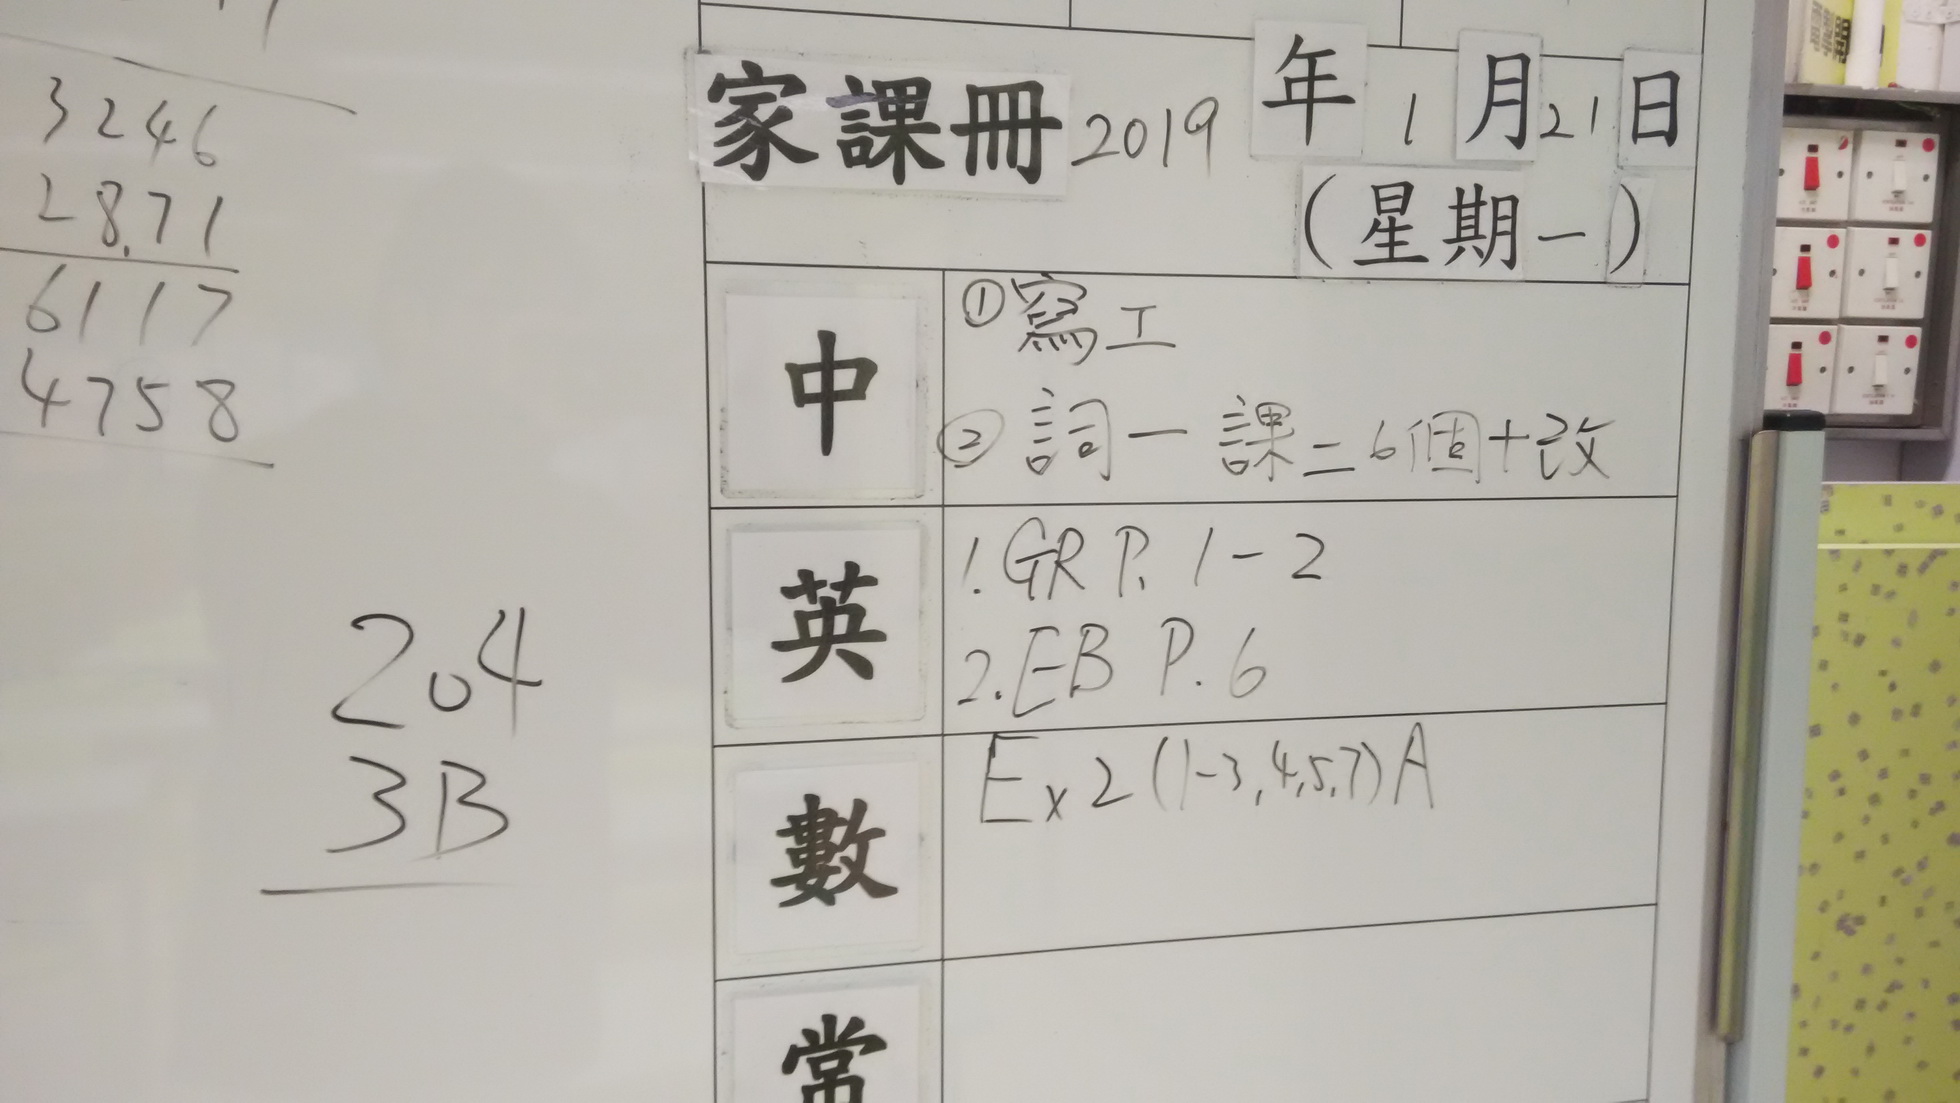 3246
28.71
6117
4758
204
3B
家課冊 2019 年 1 月 21 日
(星期一)
中
① 寫工
② 詞一 課二 6個+改
英
1. GR P. 1-2
2. EB P. 6
數
Ex 2 (1-3, 4, 5, 7) A
常